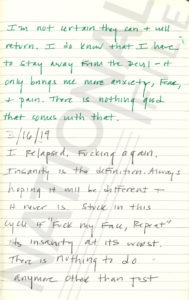 I'm not certain they can + will
return. I do know that I have
to stay away from the Devil - it
only brings me more anxiety, Fear,
+ pain. There is nothing good
that comes with that.
3/16/19
I Relapsed. Fucking again.
Insanity is the definition. Always
hoping it will be different +
it never is. Stuck in this
cycle of "Fuck my Face, Repeat"
its insanity at its worst.
There is nothing to do
anymore other than just